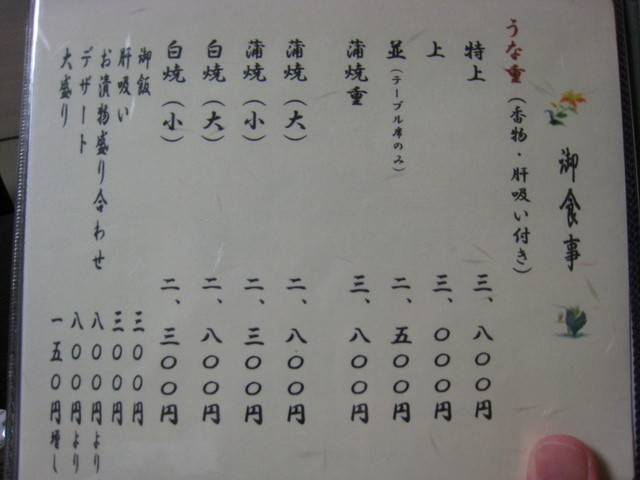 御食事
うな重（香物・肝吸い付き）
特上 三、八〇〇円
上 三、〇〇〇円
並（テーブル席のみ） 二、五〇〇円
蒲焼重 三、八〇〇円
蒲焼（大） 二、八〇〇円
蒲焼（小） 二、三〇〇円
白焼（大） 二、八〇〇円
白焼（小） 二、三〇〇円
御飯 三〇〇円
肝吸い 三〇〇円
お漬物盛り合わせ 八〇〇円より
デザート 八〇〇円より
大盛り 一五〇円増し